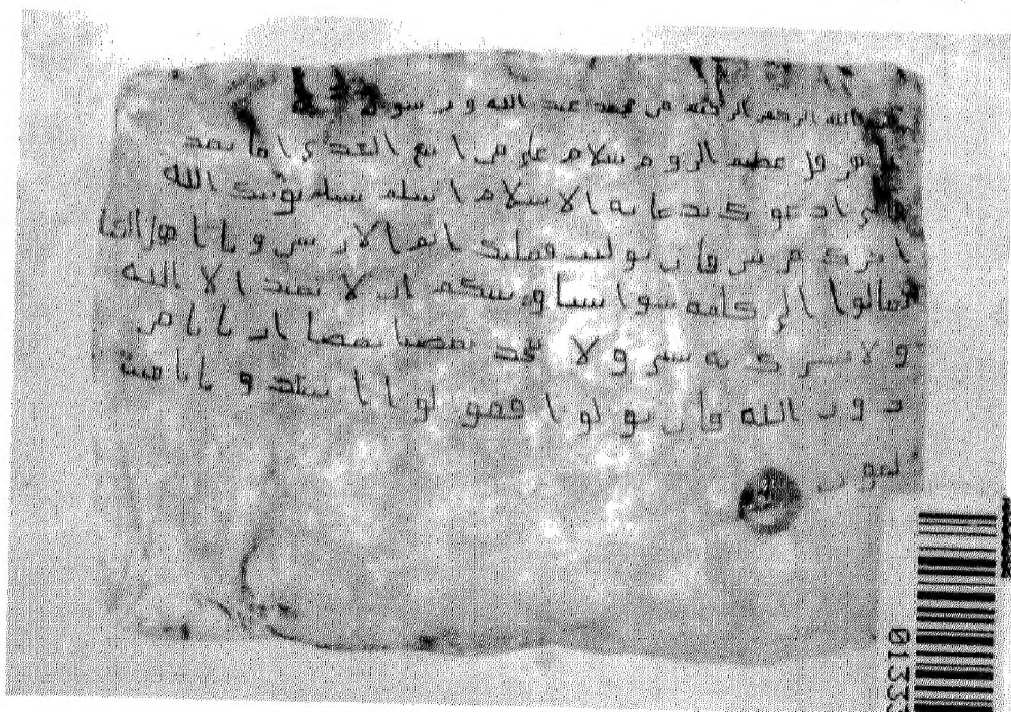 بسم الله الرحمن الرحيم من محمد عبد الله ورسوله
إلى هرقل عظيم الروم سلام على من اتبع الهدى اما بعد
فانى ادعوك بدعاية الاسلام اسلم تسلم يوتك الله
اجرك مرتين فان توليت فعليك اثم الاريسين ويا اهل الكتا
تعالوا الى كلمة سوا بيننا وبينكم ان لا نعبد الا الله
ولا نشرك به شى ولا يتخذ بعضنا بعضا اربابا من
دون الله فان تولوا فقولوا
لمون
0133